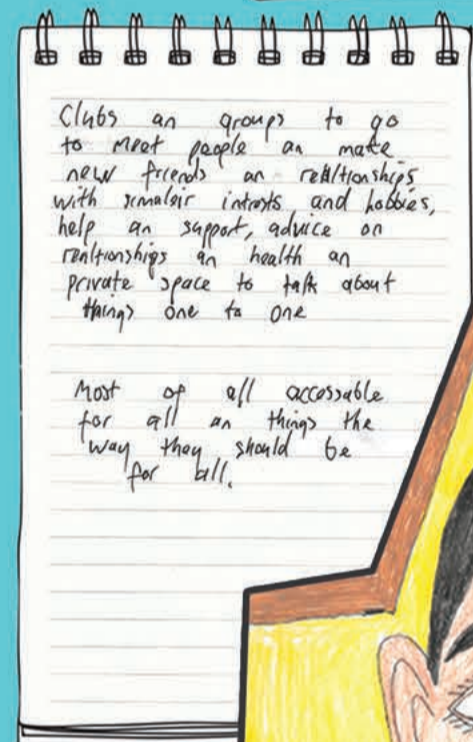 Clubs an groups to go
to meet people an make
new friends an relltionships
with simalair intrests and hobbies,
help an support, advice on
realtionships an health an
private space to talk about
things one to one
Most of all accessable
for all an things the
way they should be
for all.